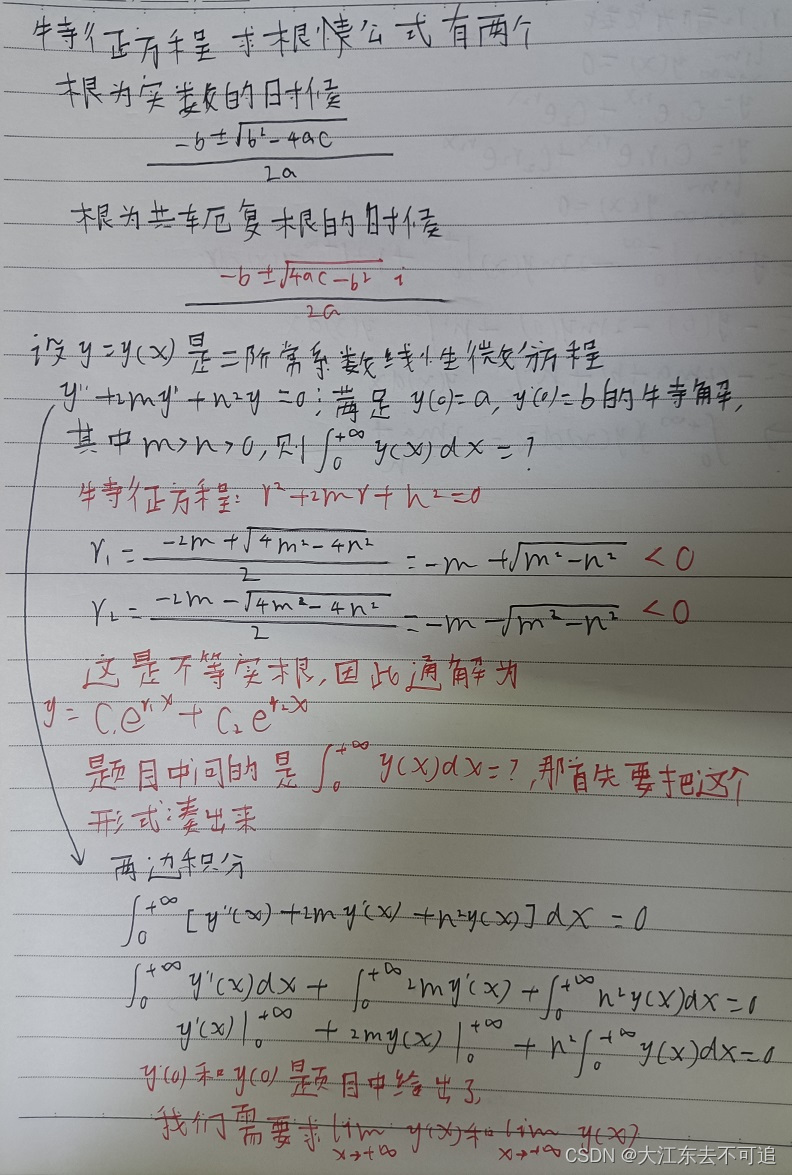 特征正方程求根公式有两个
根为实数的时候
-b±√(b²-4ac)
2a
根为共轭复根的时候
-b±√(4ac-b²) i
2a
设y=y(x)是二阶常系数线性微分方程
y''+2my'+n²y=0;满足 y(0)=a, y'(0)=b的特解,
其中m>n>0,则∫₀^{+∞} y(x)dx=?
特征正方程: r²+2mr+n²=0
r₁= (-2m+√(4m²-4n²))/2 =-m+√(m²-n²) <0
r₂= (-2m-√(4m²-4n²))/2 =-m-√(m²-n²) <0
这是不等实根,因此通解为
y= C₁e^{r₁x}+C₂e^{r₂x}
题目中问的是∫₀^{+∞} y(x)dx=?,那首先要把这个
形式凑出来
两边积分
∫₀^{+∞}[y''(x)+2my'(x)+n²y(x)]dx=0
∫₀^{+∞}y''(x)dx+∫₀^{+∞}2my'(x)+∫₀^{+∞}n²y(x)dx=0
y'(x)|₀^{+∞}+2my(x)|₀^{+∞}+n²∫₀^{+∞}y(x)dx=0
y'(0)和y(0)是题目中给出了
我们需要求lim x→+∞ y'(x)和lim x→+∞ y(x)
CSDN @大江东去不可追